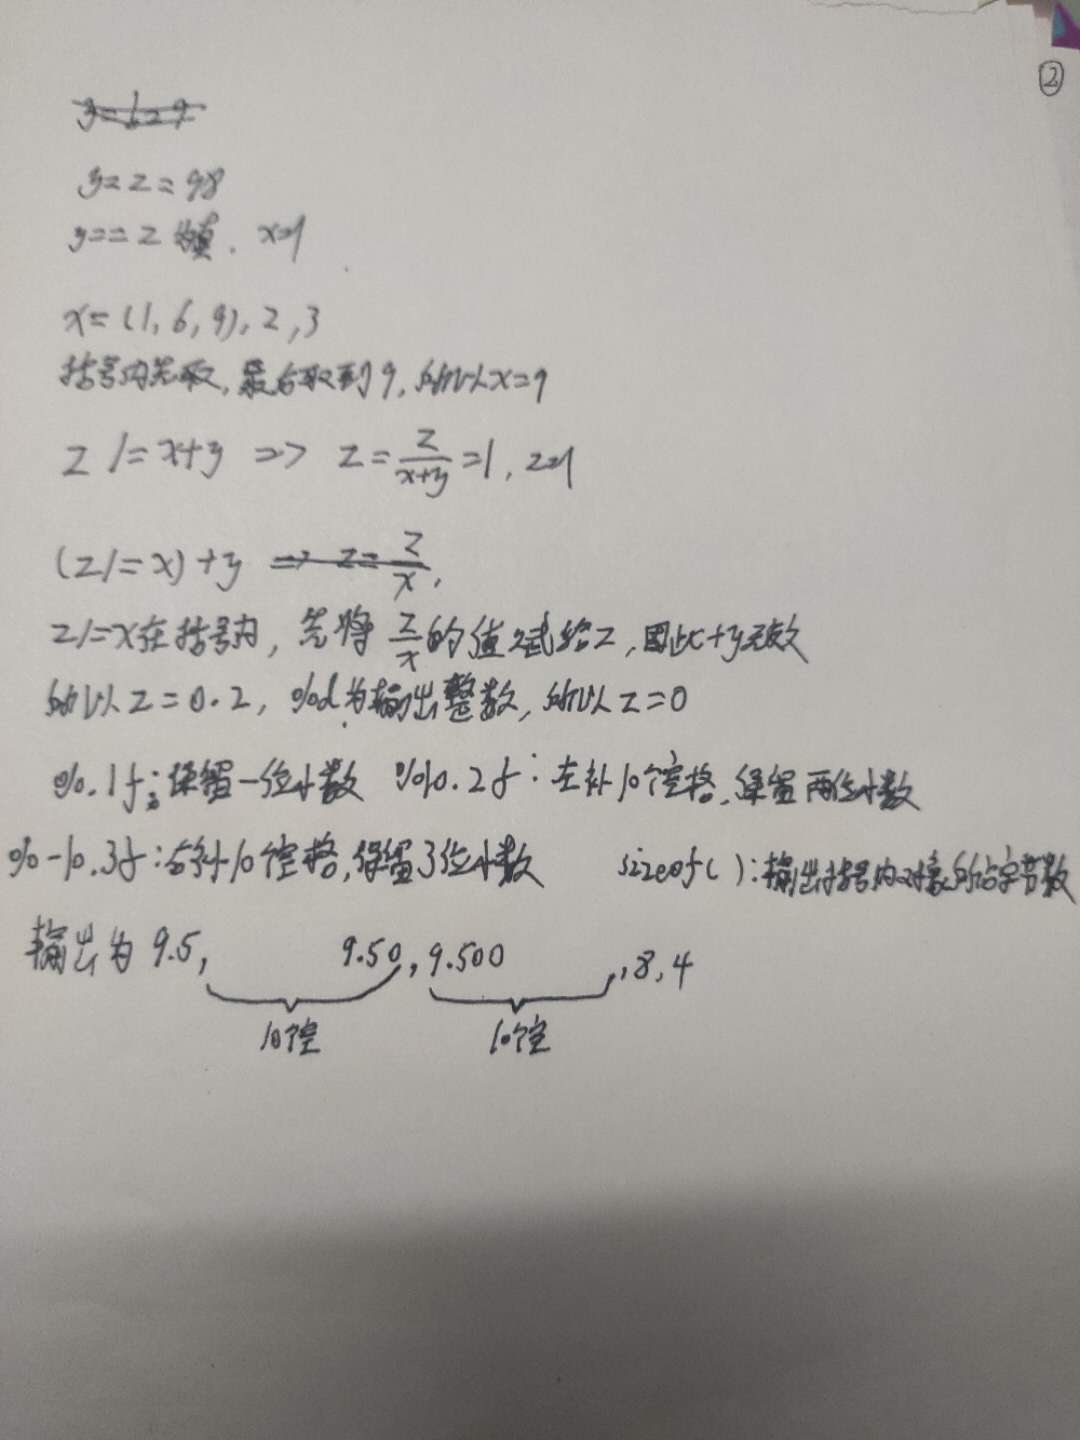 ②
y=z=98
y==z 为真. x=1
x=(1,6,9),2,3
括号内先取,最后取到9,所以x=9
z /=x+y => z=z/(x+y)=1, z=1
(z/=x)+y => z=z/x,
z/=x在括号内, 先将 z/x 的值赋给z,因此+y无效
所以z=0.2, %d为输出整数,所以z=0
%.1f:保留一位小数 %10.2f:左补10个空格,保留两位小数
%-10.3f:右补10个空格,保留3位小数 sizeof( ):输出括号内对象所占字节数
输出为 9.5, 9.50,9.500 ,,8,4
10个空 10个空